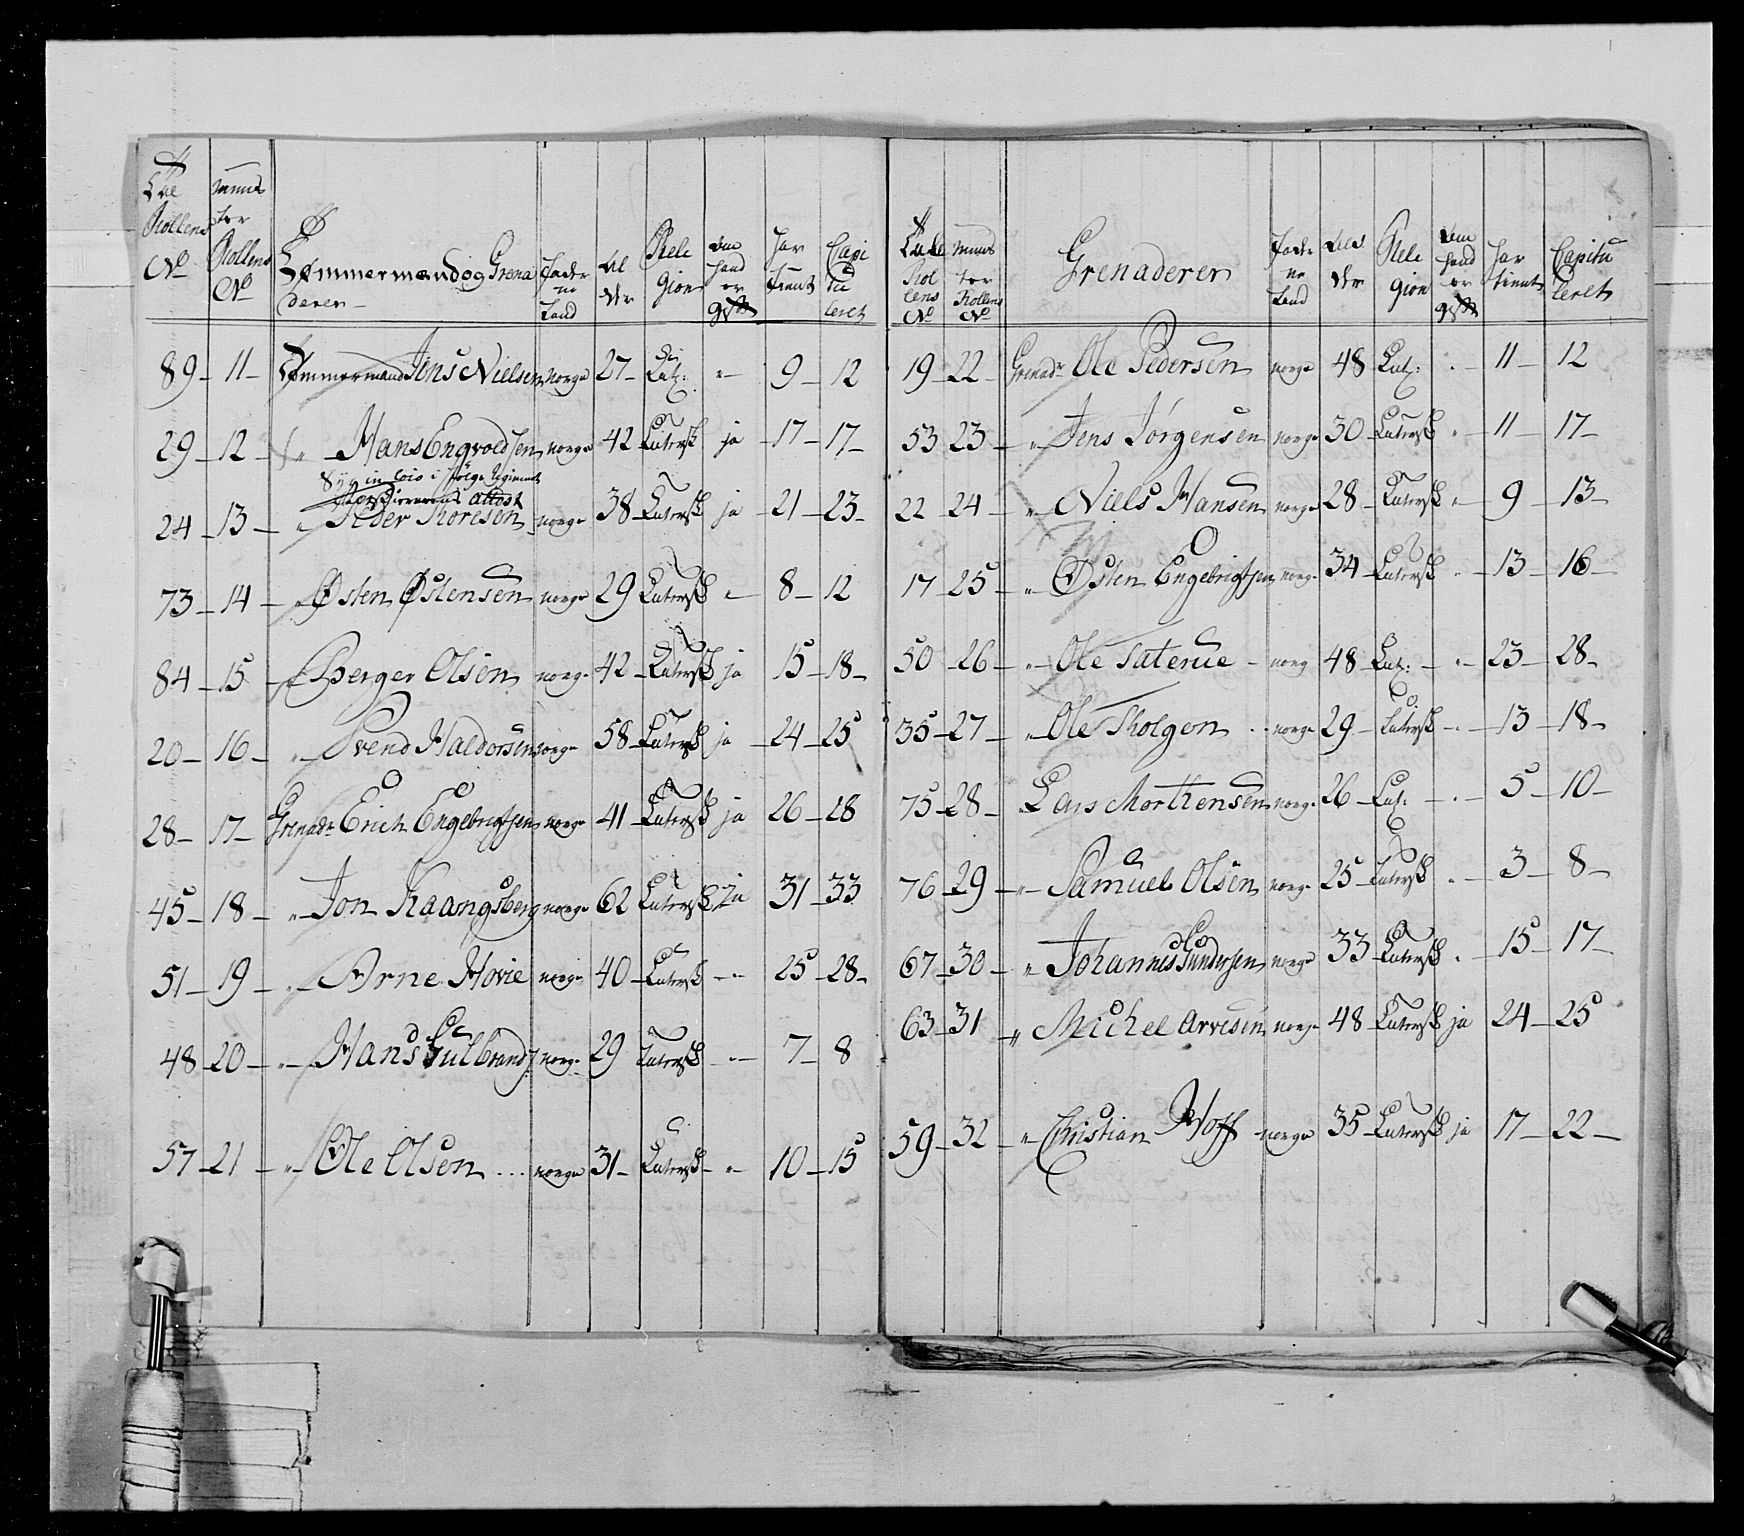 Rollens No
Rollens No
Tømmermænd og Grenaderer
Fæderne Land
Alder
Religion
har tient
Capituleret
89 – 11 – Tømmermand Jens Nielsen norge 27 – Lut: " 9 – 12
29 – 12 – " Hans Engvoldsen norge 42 Lutersk ja 17 – 17 –
Syg in loco i følge Regiments
Attest
24 – 13 – " Peder Thoresen norge 38 – Lutersk ja 21 – 23 –
73 – 14 – " Østen Østensen norge 29 Lutersk " 8 – 12
84 – 15 Berger Olsen norge 42 – Lutersk ja 15 – 18 –
20 – 16 – " Svend Haldorsen norge 58 – Lutersk ja – 24 – 25
28 – 17 – Grenadr Erich Engebrigtsen norge 41 – Lutersk ja 26 – 28
45 – 18 – " Jon Kaangsberg norge 62 Lutersk ja 31 – 33
51 – 19 – " Arne Hovie norge 40 – Lutersk – " 25 – 28 –
48 – 20 – " Hans Gulbrands: norge 29 Lutersk " 7 – 8
57 – 21 – " Ole Olsen ... norge 31 – Lutersk – " 10 – 15
Rollens No
Rollens No
Grenaderer
Fæderne Land
Alder
Religion
har tient
Capituleret
19 – 22 – Grenadr Ole Pedersen norge 48 Lut: " 11 – 12
53 23 – " Jens Jørgensen norge 30 Lutersk " 11 – 17 –
22 – 24 – " Niels Hansen norge 28 – Lutersk " 9 – 13 –
17 – 25 – " Østen Engebrigtsen norge 34 – Lutersk " 13 – 16 –
50 – 26 – " Ole Saterue – norg 48 – Lut: – " 23 – 28 –
35 – 27 – " Ole Tholgen .. norge 29 – Lutersk – " 13 – 18 –
75 – 28 – Lars Morthensen norge 26 – Lut: – " 5 – 10 –
76 – 29 – " Samuel Olsen norge 25 – Lutersk " 3 – 8 –
67 – 30 – " Johannes Gundersen norge 33 Lutersk " 15 – 17 –
63 – 31 – " Michel Arvesen norge 48 Lutersk ja 24 – 25
59 – 32 – " Christian Hoff norge 35 Lutersk ja 17 – 22 –